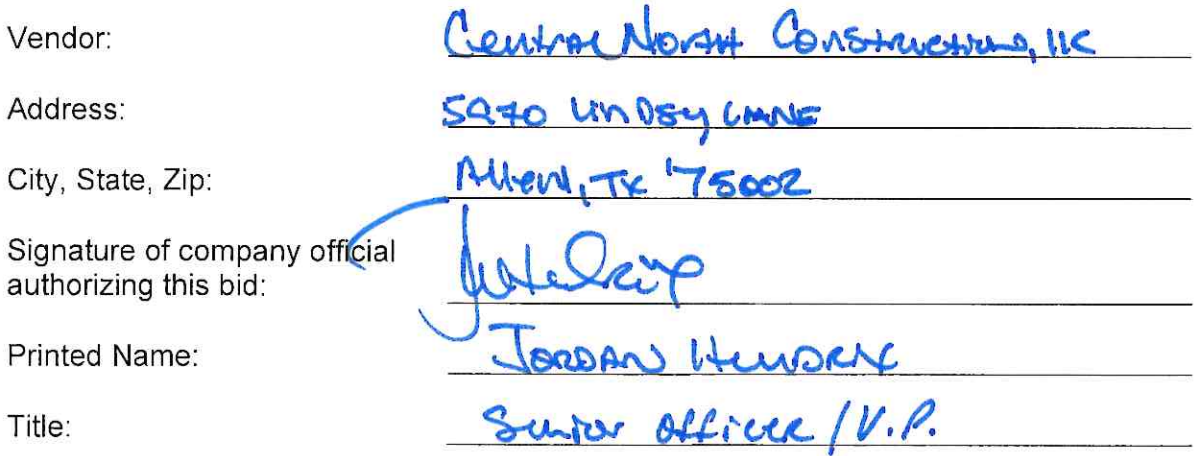 Vendor: Central North Construction, llc
Address: 5970 Lindsey Lane
City, State, Zip: Allen, TX 75002
Signature of company official
authorizing this bid:
Printed Name: Jordan Hendrix
Title: Senior Officer / V.P.